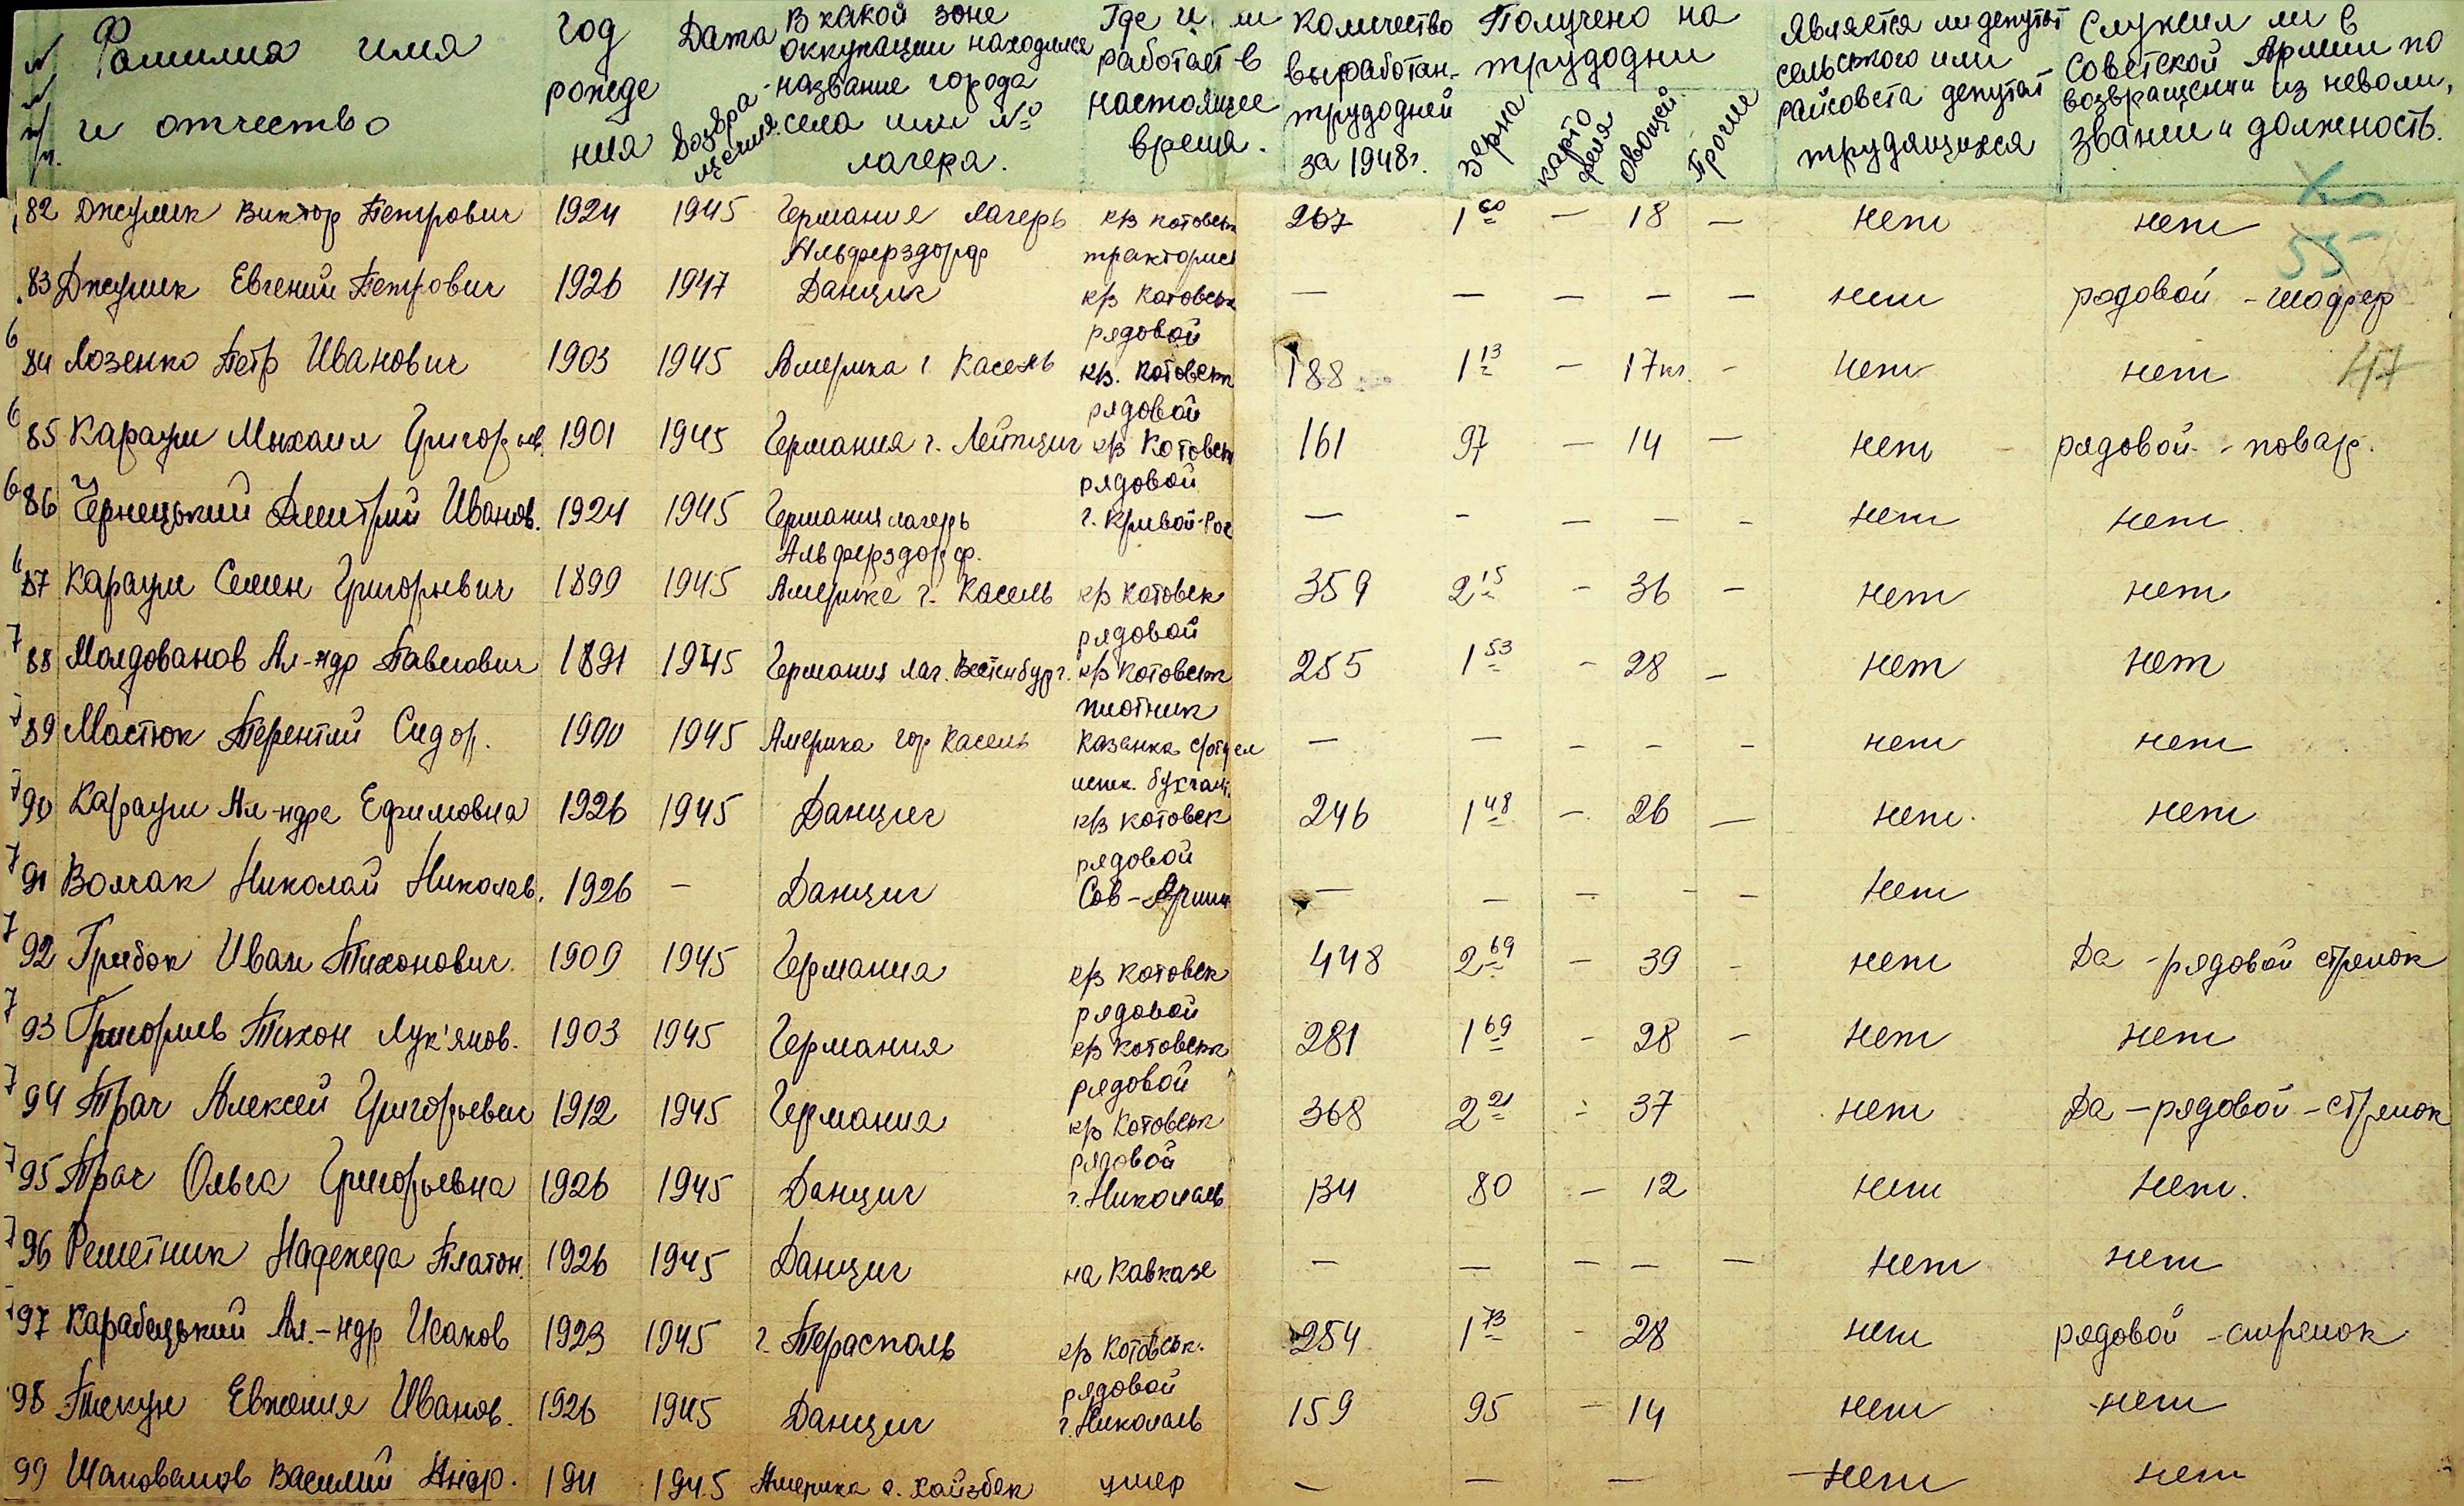 № Фамилия имя и отчество
Год рождения
Дата возвращения
В какой зоне оккупации находился название города села или № лагеря.
Где и работает в настоящее время.
Количество выработан. трудодней за 1948 г.
Получено на трудодни
зерна картофеля овощей прочие
Является ли депутат сельского или райсовета депутат трудящихся
Служил ли в Советской Армии по возвращении из неволи, звание и должность.
55
47
82 Джулик Виктор Петрович 1924 1945 Германия лагерь к/з Котовск 267 1 60 — 18 — нет нет
Альферздорф тракторист
83 Джулик Евгений Петрович 1926 1947 Данциг к/з Котовск — — — — — нет рядовой - шофер
рядовой
6 84 Лозенко Петр Иванович 1903 1945 Америка г. Касель к/з. Котовск 188 1 13 — 17 кг. - нет нет
рядовой
6 85 Карауш Михаил Григорьев. 1901 1945 Германия г. Лейпциг к/з Котовск 161 97 — 14 — нет рядовой - повар.
рядовой
6 86 Чернецький Дмитрий Иванов. 1924 1945 Германия лагерь г. Кривой-Рог — - — — - нет нет
Альферздорф.
6 87 Карауш Семен Григорьевич 1899 1945 Америке г. Касель к/з Котовск 359 2 15 - 36 - нет нет
рядовой
7 88 Молдованов Ал-ндр Павлович 1891 1945 Германия лаг. к/з Котовск 255 1 53 - 28 - нет нет
плотник
7 89 Мастюк Терентий Сидор. 1900 1945 Америка гор Касель Казанка — — - - - нет нет
бухгалт.
7 90 Карауш Ал-ндра Ефимовна 1926 1945 Данциг к/з Котовск 246 1 48 — 26 — нет. нет
рядовой
7 91 Волчак Николай Николаев. 1926 — Данциг Сов-Армии — — — - — нет
7 92 Грибок Иван Тихонович. 1909 1945 Германия к/з Котовск 448 2 69 — 39 - нет Да - рядовой стрелок
рядовой
7 93 Григорьев Тихон Лук'янов. 1903 1945 Германия к/з Котовск 281 1 69 - 28 - нет нет
рядовой
7 94 Трач Алексей Григорьевич 1912 1945 Германия к/з Котовск 368 2 21 - 37 нет Да - рядовой - стрелок
рядовой
7 95 Трач Ольга Григорьевна 1926 1945 Данциг г. Николаев 134 80 — 12 нет нет.
7 96 Решетник Надежда Платон. 1926 1945 Данциг на Кавказе — — — — — нет нет
7 97 Карабецький Ал.-ндр Исаков 1923 1945 г. Терасполь к/з Котовськ. 254 1 73 - 28 нет рядовой - стрелок
рядовой
98 Текун Евгения Иванов. 1926 1945 Данциг г. Николаев 159 95 - 14 нет нет
99 Шаповалов Василий Андр. 1945 Америка умер — — — нет нет